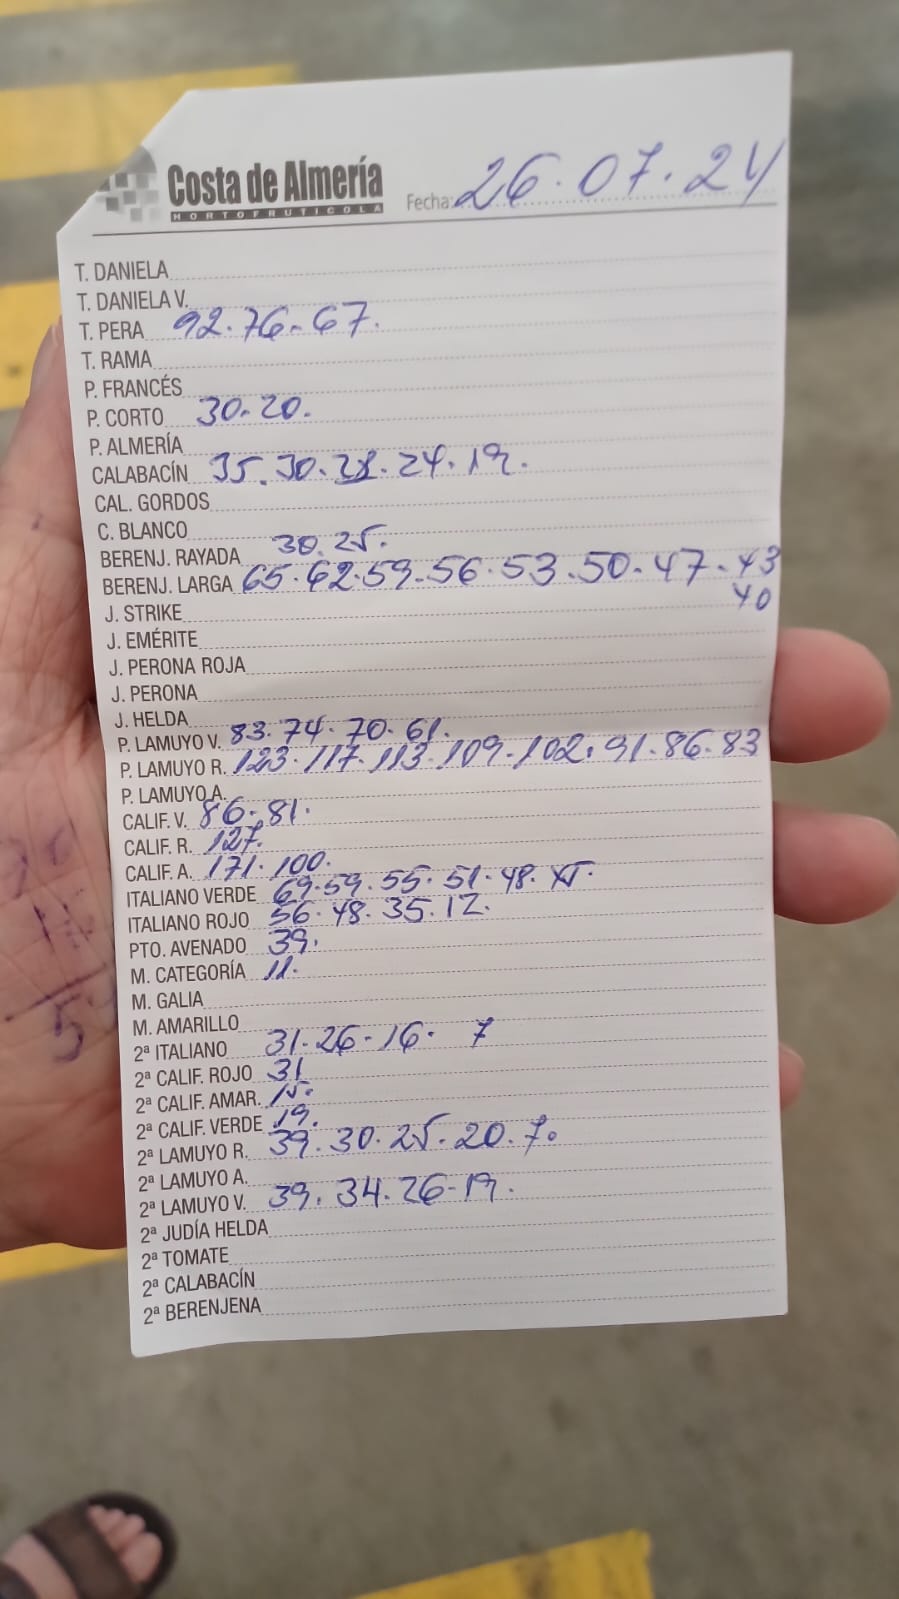 Costa de Almería
HORTOFRUTICOLA
Fecha: 26.07.24
T. DANIELA
T. DANIELA V.
T. PERA 92.76.67.
T. RAMA
P. FRANCÉS
P. CORTO 30.20.
P. ALMERÍA
CALABACÍN 35.30.28.24.19.
CAL. GORDOS
C. BLANCO
BERENJ. RAYADA 30.25.
BERENJ. LARGA 65.62.59.56.53.50.47.43
40
J. STRIKE
J. EMÉRITE
J. PERONA ROJA
J. PERONA
J. HELDA
P. LAMUYO V. 83.74.70.61.
P. LAMUYO R. 123.117.113.109.102.91.86.83
P. LAMUYO A.
CALIF. V. 86.81.
CALIF. R. 127.
CALIF. A. 171.100.
ITALIANO VERDE 69.59.55.51.48.45.
ITALIANO ROJO 56.48.35.12.
PTO. AVENADO 39.
M. CATEGORÍA 11.
M. GALIA
M. AMARILLO
2ª ITALIANO 31.26.16. 7
2ª CALIF. ROJO 31
2ª CALIF. AMAR. 15.
2ª CALIF. VERDE 19.
2ª LAMUYO R. 39.30.25.20.7.
2ª LAMUYO A.
2ª LAMUYO V. 39.34.26.19.
2ª JUDÍA HELDA
2ª TOMATE
2ª CALABACÍN
2ª BERENJENA